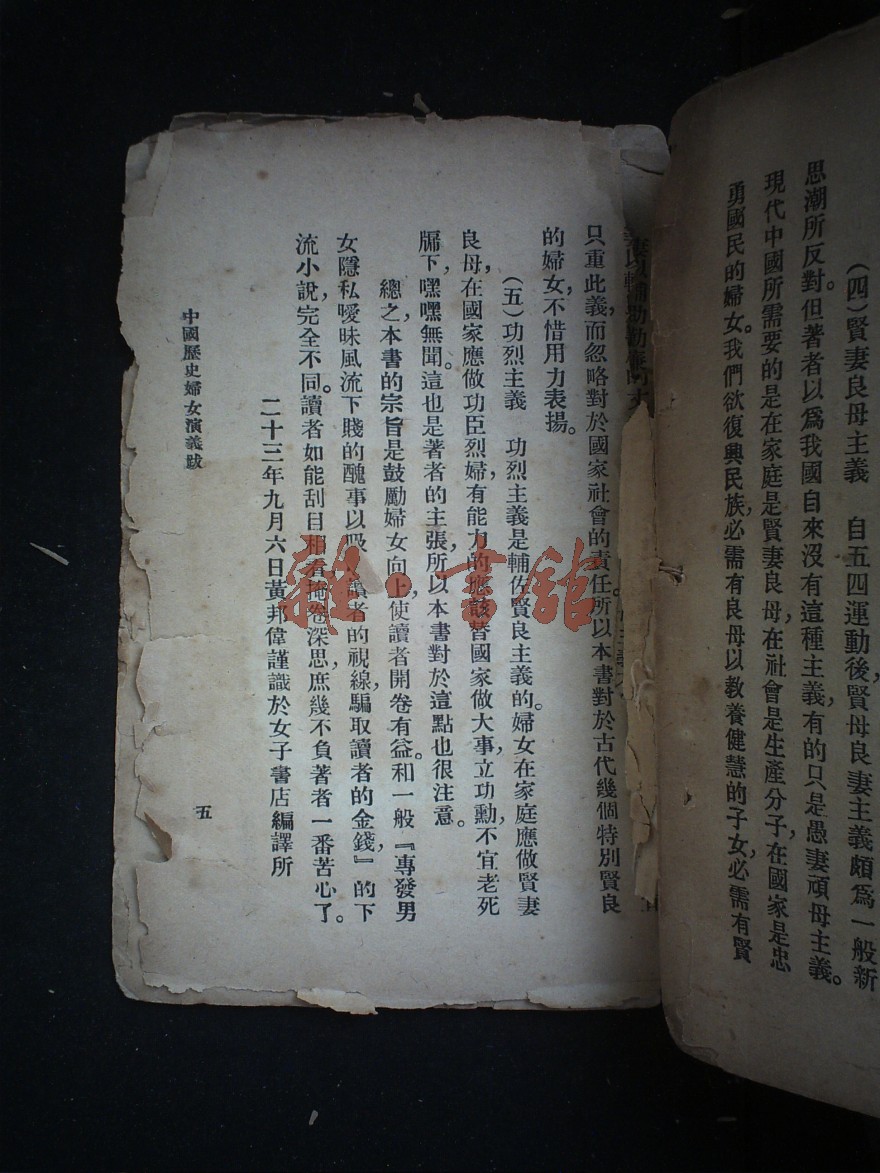 （四）賢妻良母主義　自五四運動後，賢母良妻主義頗爲一般新
思潮所反對。但著者以爲我國自來沒有這種主義，有的只是愚妻頑母主義。
現代中國所需要的是在家庭是賢妻良母，在社會是生產分子，在國家是忠
勇國民的婦女。我們欲復興民族，必需有良母以教養健慧的子女，必需有賢
只重此義，而忽略對於國家社會的責任。所以本書對於古代幾個特別賢良
的婦女，不惜用力表揚。
（五）功烈主義　功烈主義是輔佐賢良主義的。婦女在家庭應做賢妻
良母，在國家應做功臣烈婦，有能力的應該替國家做大事，立功勳，不宜老死
牖下，嘿嘿無聞。這也是著者的主張，所以本書對於這點也很注意。
總之本書的宗旨是鼓勵婦女向上，使讀者開卷有益。和一般『專發男
女隱私噯昧風流下賤的醜事以吸讀者的視線，騙取讀者的金錢』的下
流小說完全不同。讀者如能刮目相看，掩卷深思，庶幾不負著者一番苦心了。
二十三年九月六日黃邦偉謹識於女子書店編譯所
中國歷史婦女演義跋
五
雜·書館